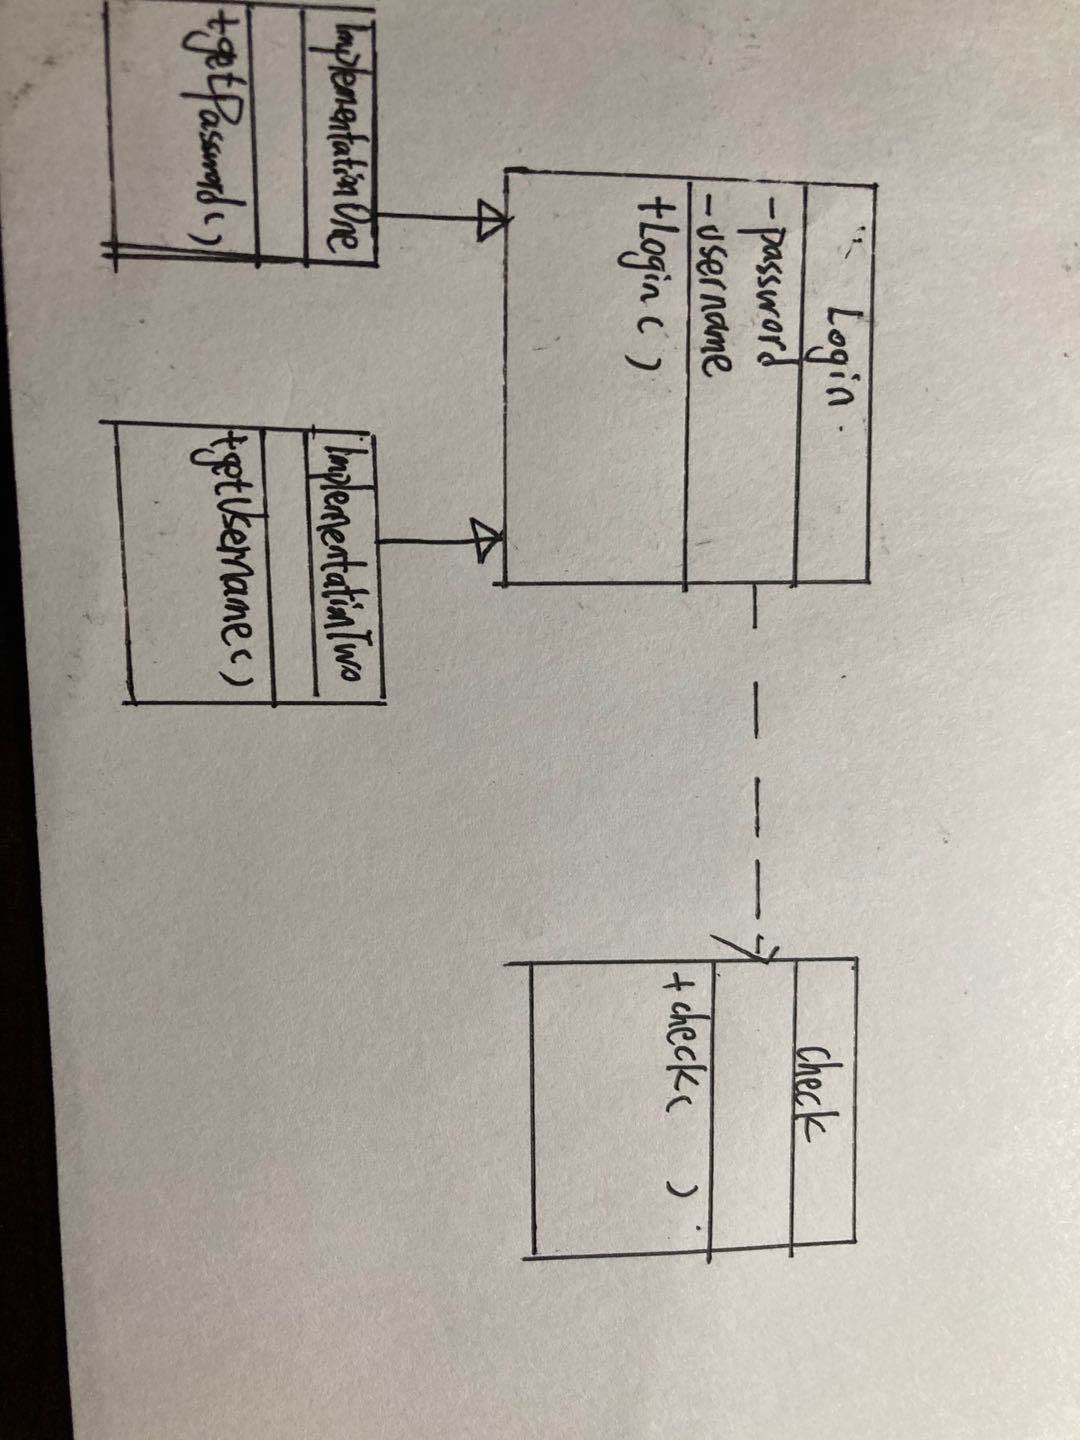 Login
-password
-username
+Login( )
check
+check( )
ImplementationOne
+getPassword()
ImplementatinTwo
+getUsername()